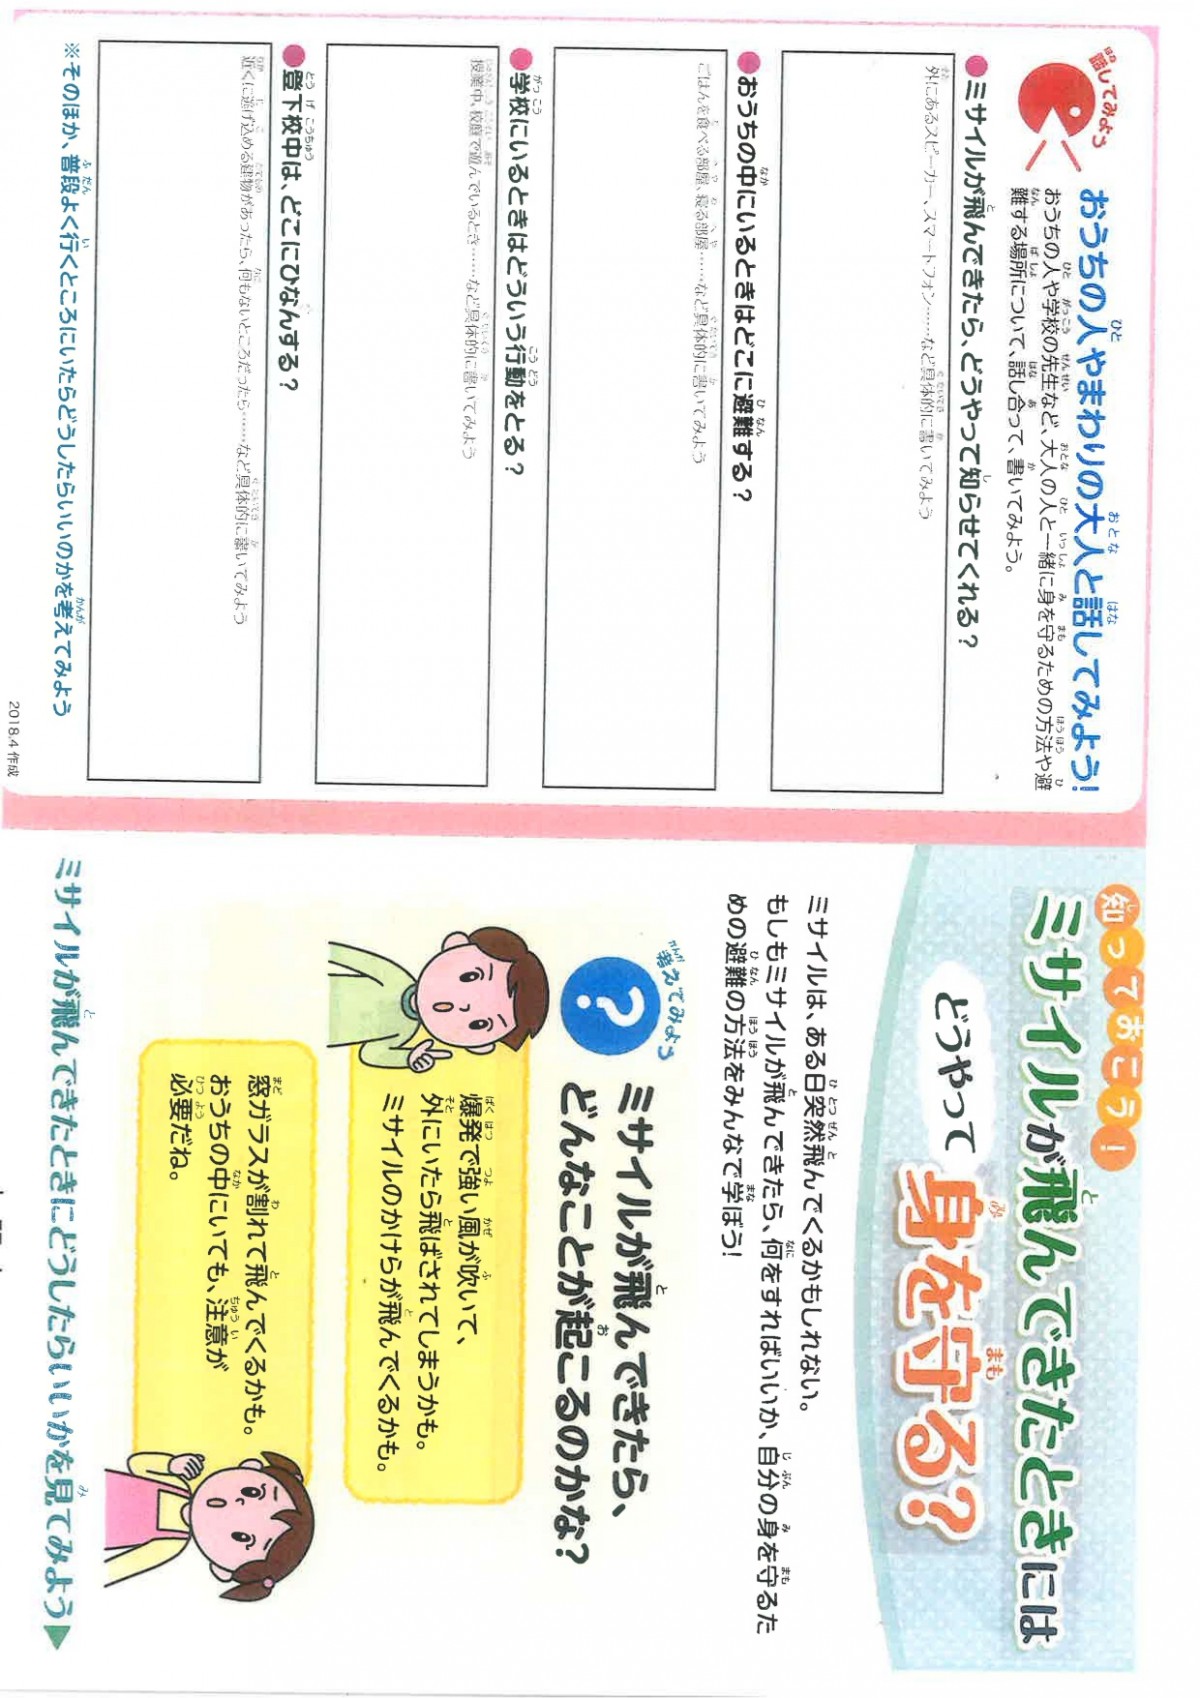 話してみよう
おうちの人やまわりの大人と話してみよう!
おうちの人や学校の先生など、大人の人と一緒に身を守るための方法や避
難する場所について、話し合って、書いてみよう。
●ミサイルが飛んできたら、どうやって知らせてくれる?
外にあるスピーカー、スマートフォン……など具体的に書いてみよう
●おうちの中にいるときはどこに避難する?
ごはんを食べる部屋、寝る部屋……など具体的に書いてみよう
●学校にいるときはどういう行動をとる?
授業中、校庭で遊んでいるとき……など具体的に書いてみよう
●登下校中は、どこにひなんする?
近くに逃げ込める建物があったら、何もないところだったら……など具体的に書いてみよう
※そのほか、普段よく行くところにいたらどうしたらいいのかを考えてみよう
2018.4 作成
知っておこう!
ミサイルが飛んできたときには
どうやって身を守る?
ミサイルは、ある日突然飛んでくるかもしれない。
もしもミサイルが飛んできたら、何をすればいいか、自分の身を守るた
めの避難の方法をみんなで学ぼう!
考えてみよう
?
ミサイルが飛んできたら、
どんなことが起こるのかな?
爆発で強い風が吹いて、
外にいたら飛ばされてしまうかも。
ミサイルのかけらが飛んでくるかも。
窓ガラスが割れて飛んでくるかも。
おうちの中にいても、注意が
必要だね。
ミサイルが飛んできたときにどうしたらいいかを見てみよう▶